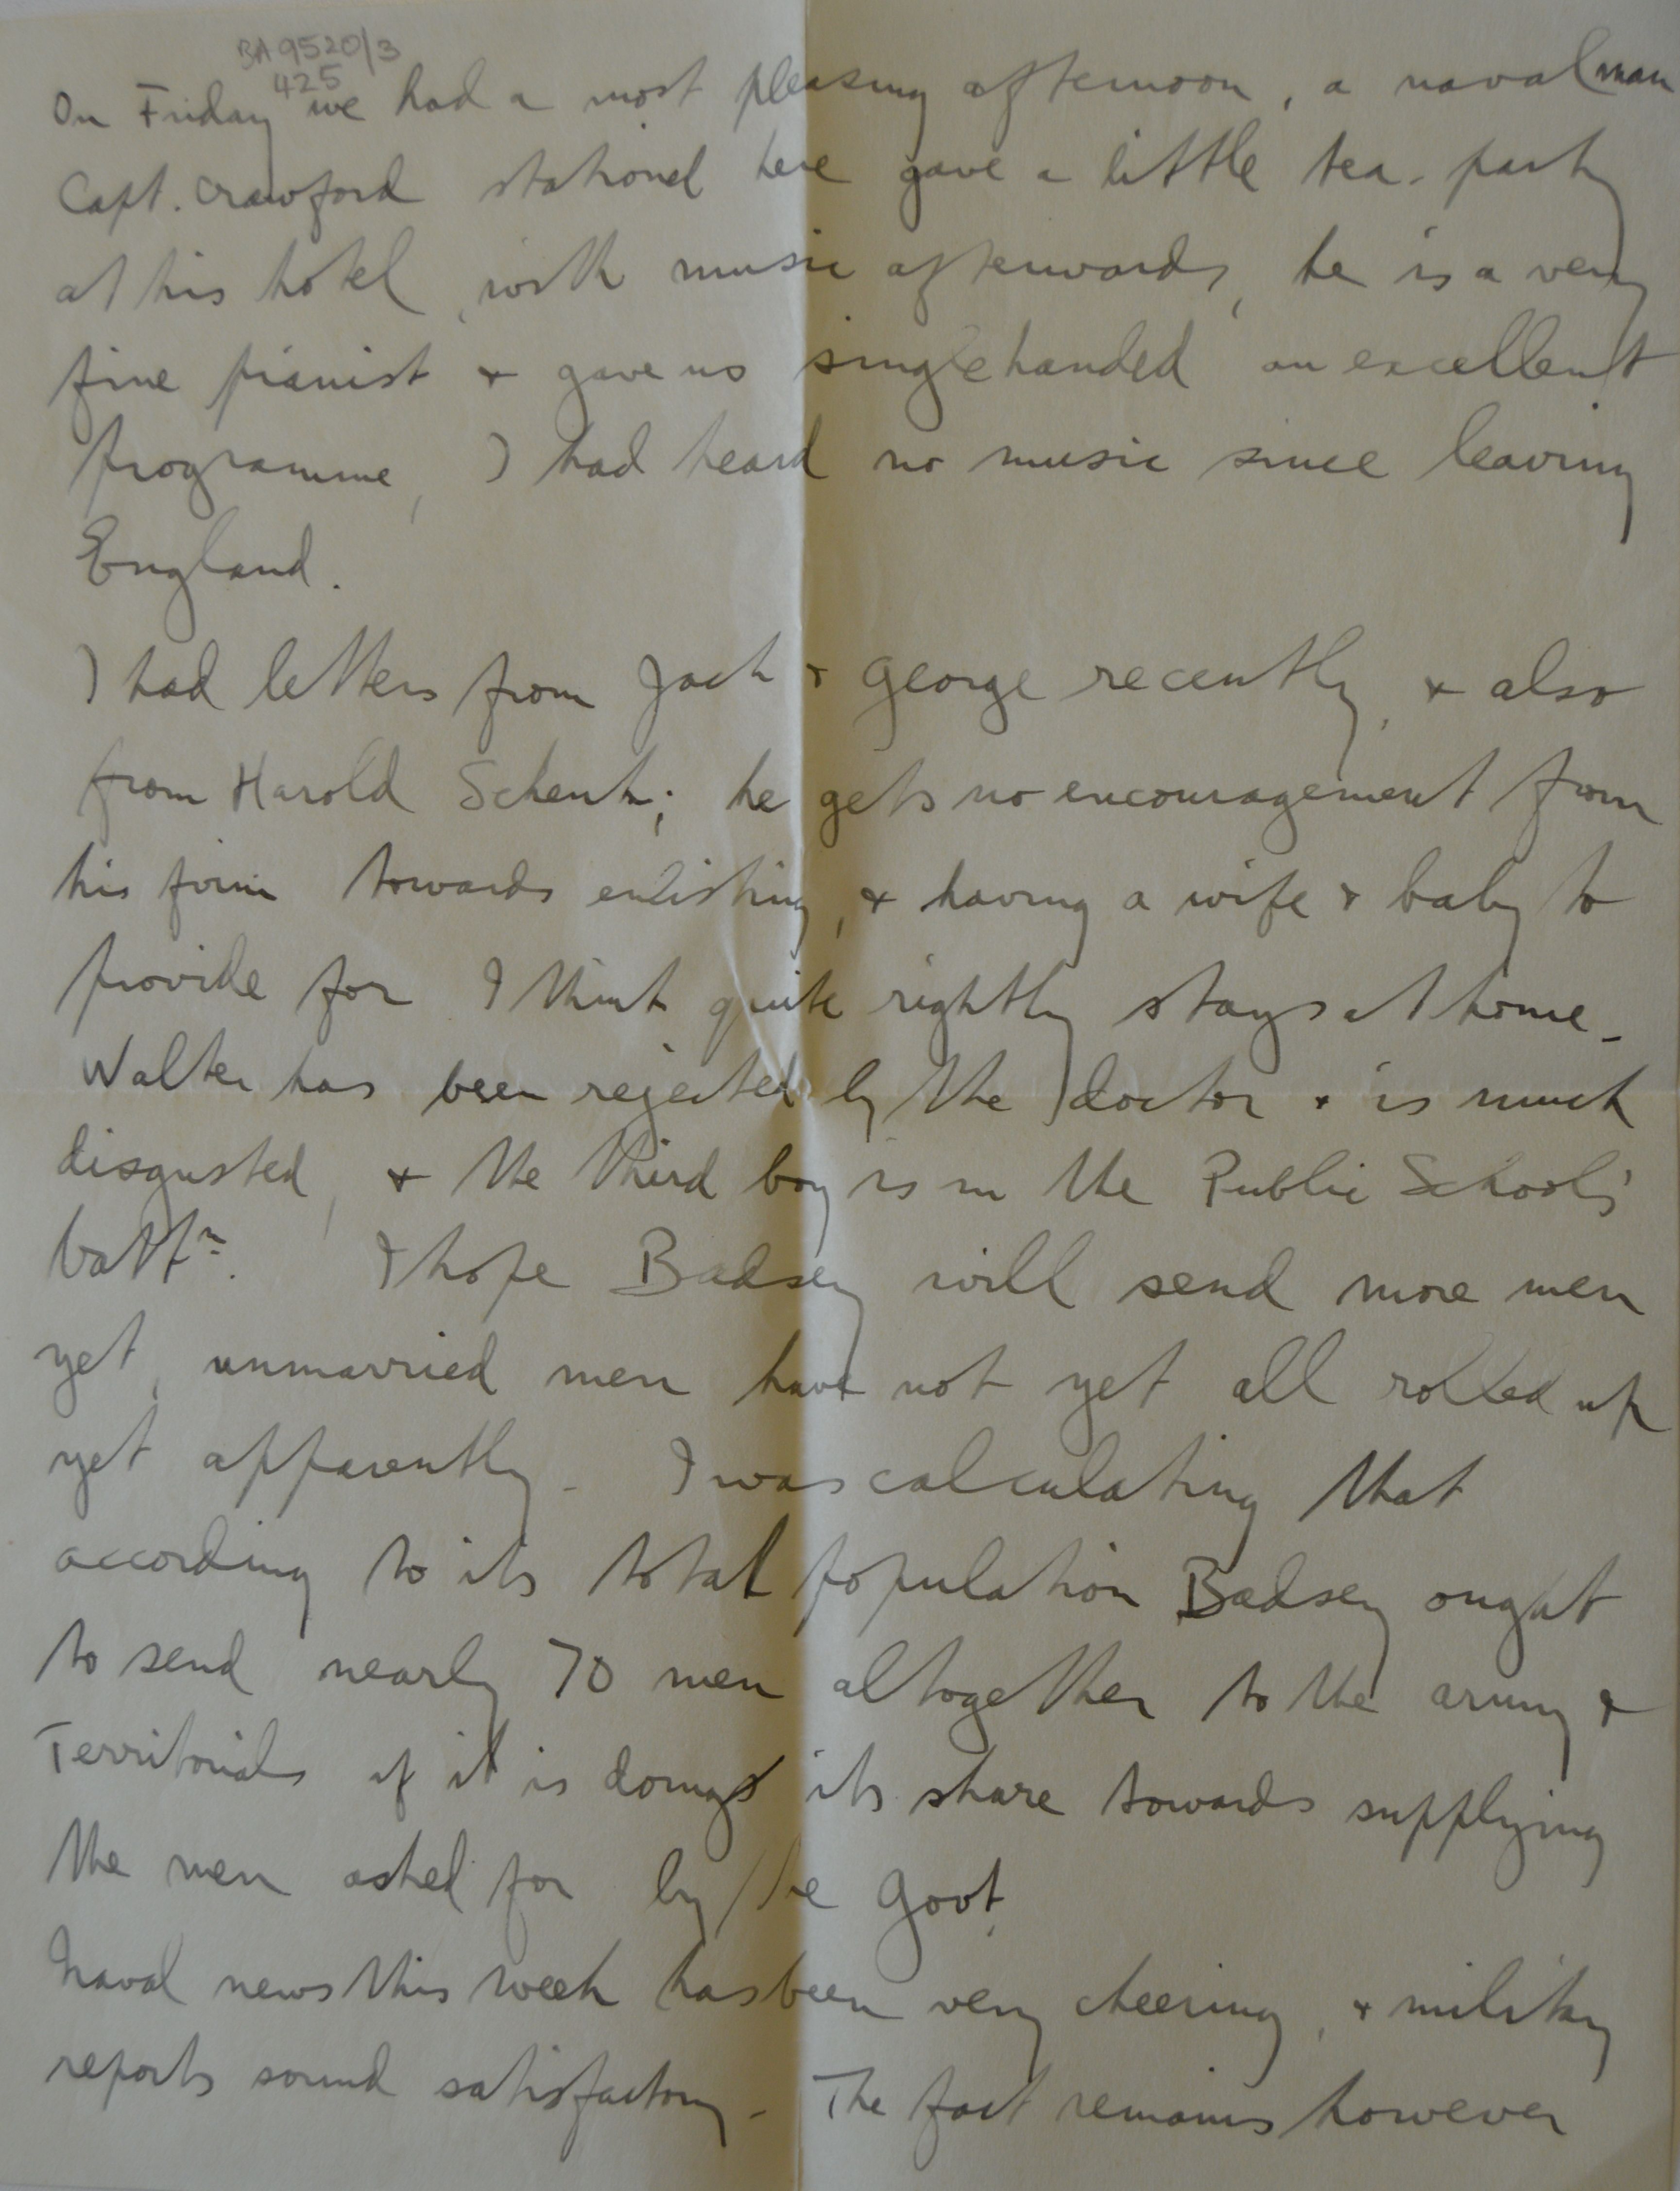 BA 9520/3
425
On Friday we had a most pleasing afternoon, a naval man
Capt. Crawford stationed here gave a little tea-party
at his hotel, with music afterwards, he is a very
fine pianist & gave us singlehanded an excellent
programme, I had heard no music since leaving
England.
I had letters from Jack & George recently, & also
from Harold Schenk; he gets no encouragement from
his firm towards enlisting, & having a wife & baby to
provide for I think quite rightly stays at home.
Walter has been rejected by the doctor & is much
disgusted, & the third boy is in the Public Schools'
battn. I hope Badsey will send more men
yet, unmarried men have not yet all rolled up
yet apparently. I was calculating that
according to its total population Badsey ought
to send nearly 70 men altogether to the army &
Territorials if it is doing its share towards supplying
the men asked for by the Govt.
Naval news this week has been very cheering, & military
reports sound satisfactory. The fact remains however